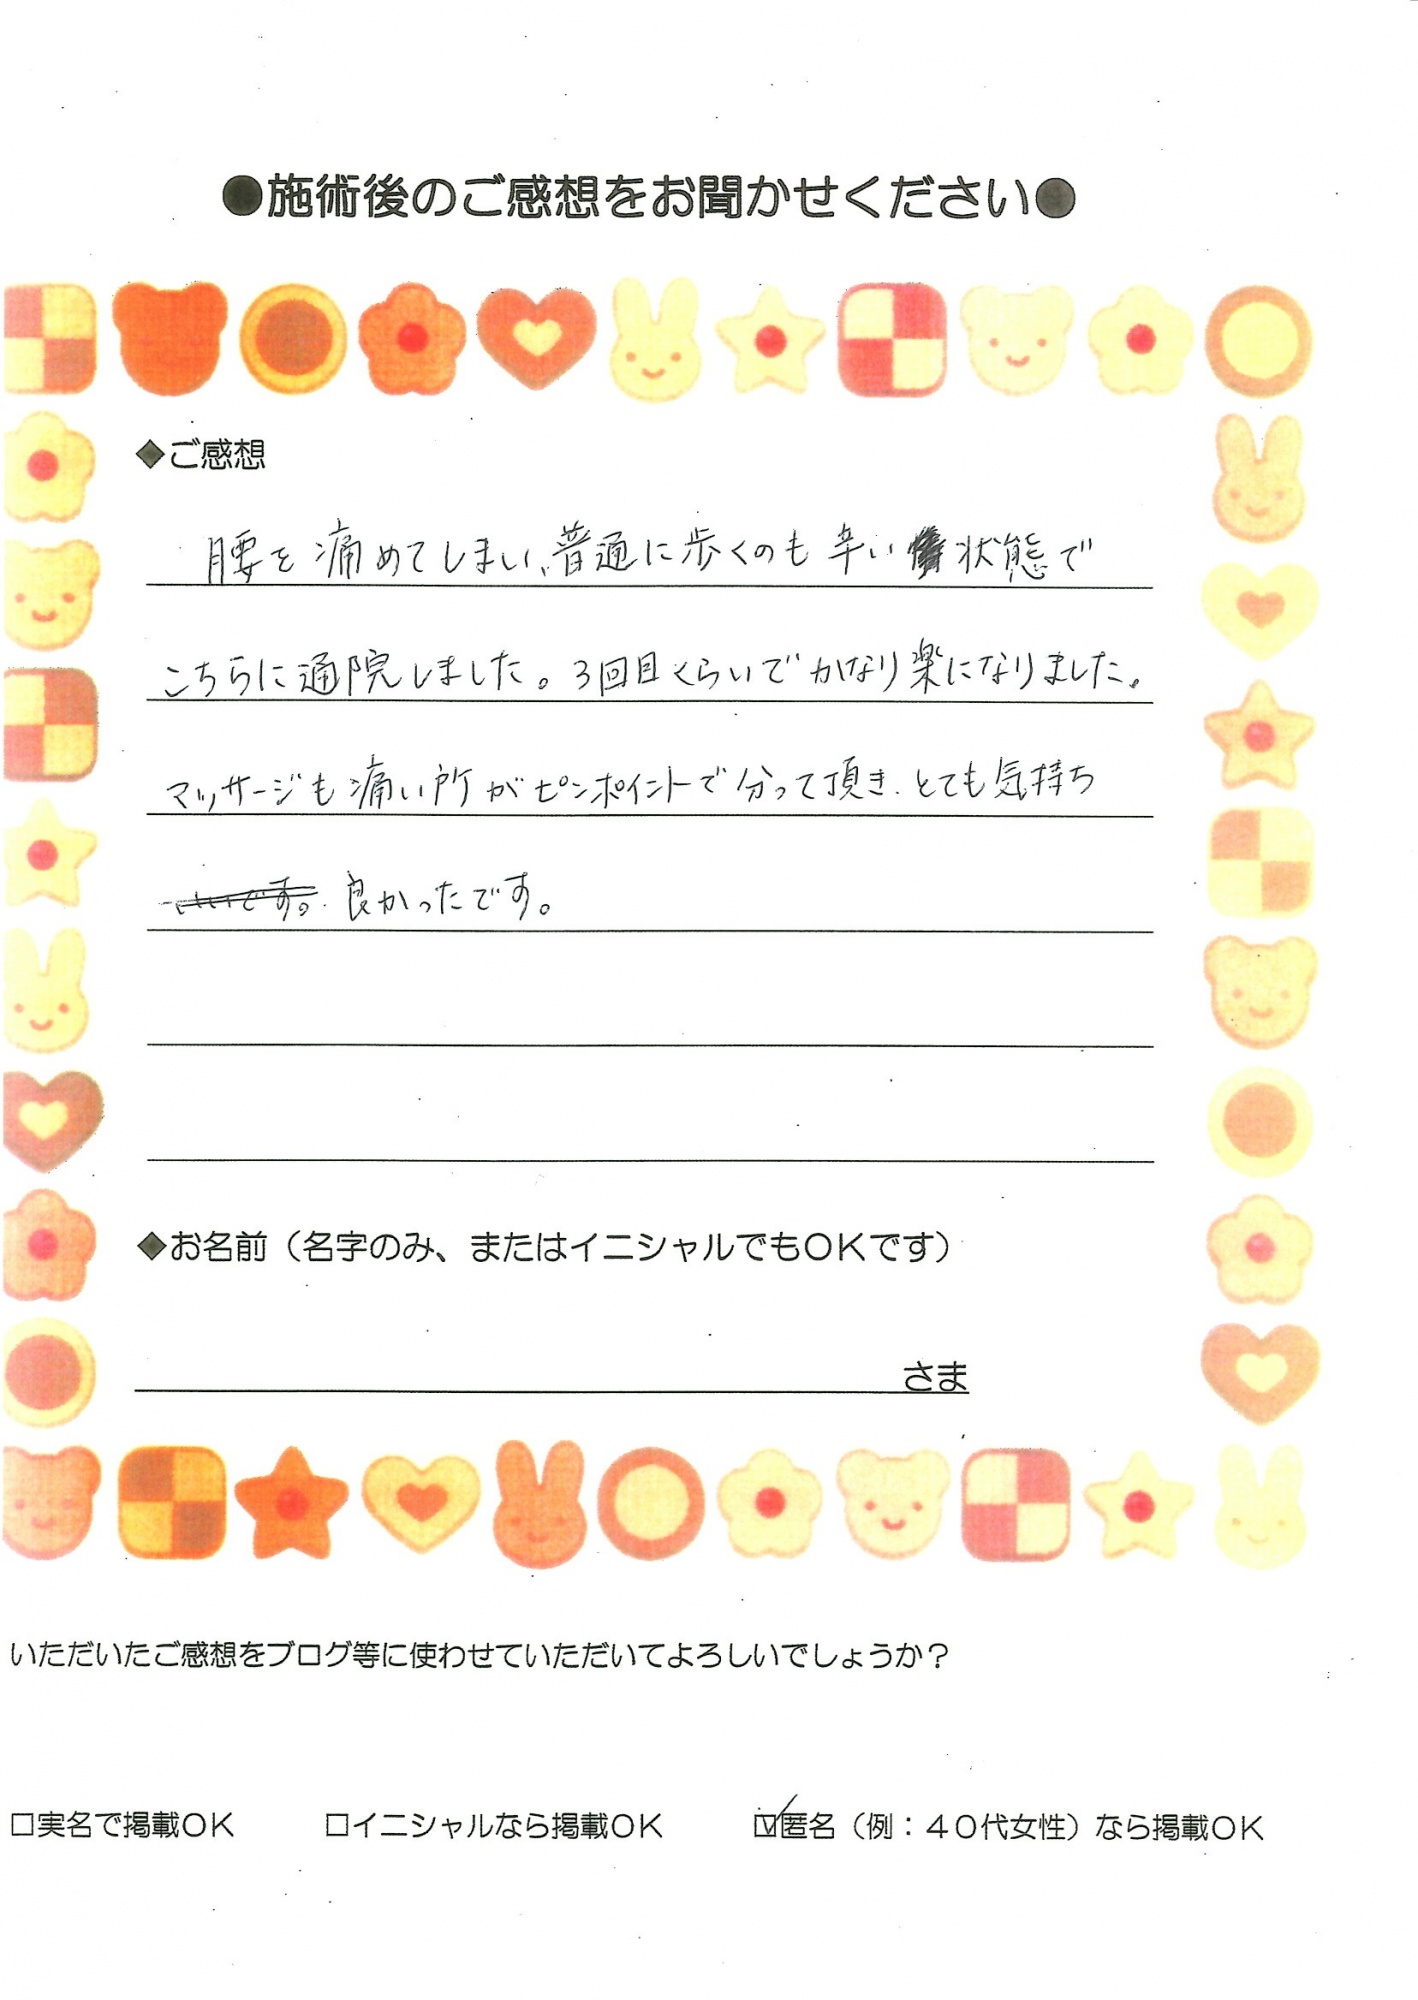 ●施術後のご感想をお聞かせください●
◆ご感想
腰を痛めてしまい、普通に歩くのも辛い状態で
こちらに通院しました。3回目くらいでかなり楽になりました。
マッサージも痛い所がピンポイントで分って頂き、とても気持ち
良かったです。
◆お名前（名字のみ、またはイニシャルでもＯＫです）
さま
いただいたご感想をブログ等に使わせていただいてよろしいでしょうか？
□実名で掲載ＯＫ □イニシャルなら掲載ＯＫ ☑匿名（例：４０代女性）なら掲載ＯＫ